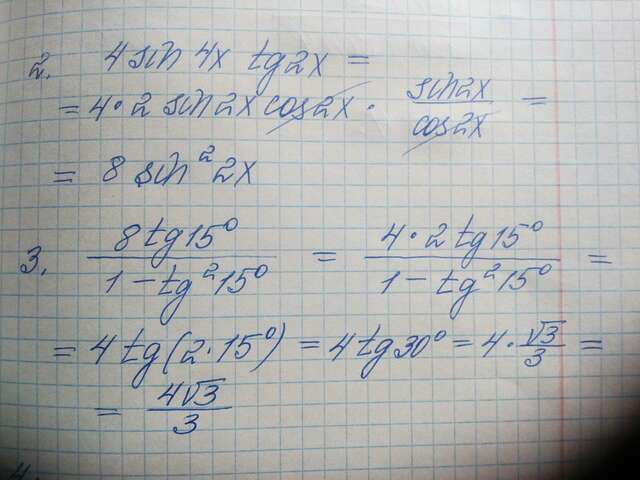 2. 4 sin 4x tg 2x =
= 4 • 2 sin 2x cos 2x • \frac{sin 2x}{cos 2x} =
= 8 sin² 2x
3. \frac{8 tg 15°}{1 - tg² 15°} = \frac{4 • 2 tg 15°}{1 - tg² 15°} =
= 4 tg (2 • 15°) = 4 tg 30° = 4 • \frac{√3}{3} =
= \frac{4√3}{3}